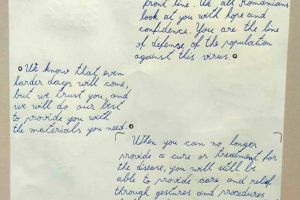 front line. We all Romanians
look at you with hope and
confidence. You are the line
of defense of the population
against this virus.
We know that even
harder days will come,
but we trust you and
we will do our best
to provide you with
the materials you need.
When you can no longer
provide a cure or treatment for
the disease, you will still be
able to provide care and relief
through gestures and procedures